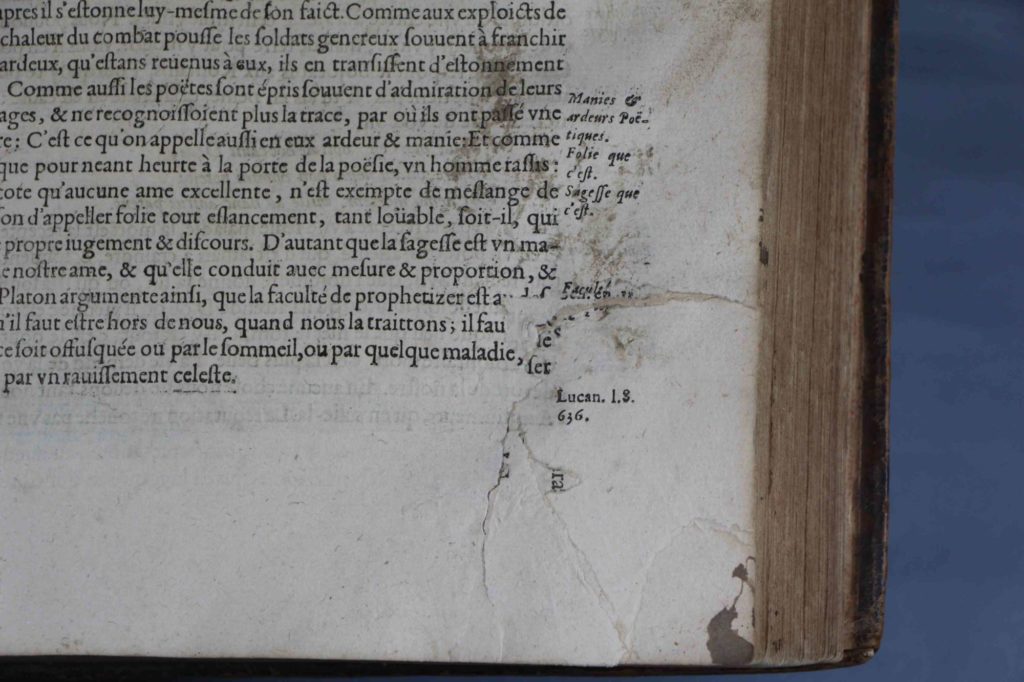 pres il s'eſtonne luy-meſme de ſon faict. Comme aux exploicts de
chaleur du combat pouſſe les ſoldats genereux ſouuent à franchir
ardeux, qu'eſtans reuenus à eux, ils en tranſiſſent d'eſtonnement
Comme auſſi les poëtes ſont épris ſouuent d'admiration de leurs
ages, & ne recognoiſſoient plus la trace, par où ils ont paſſé vne
re: C'eſt ce qu'on appelle auſſi en eux ardeur & manie: Et comme
que pour neant heurte à la porte de la poëſie, vn homme raſſis:
tote qu'aucune ame excellente, n'eſt exempte de meſlange de
on d'appeller folie tout eſlancement, tant loüable, ſoit-il, qui
propre iugement & diſcours. D'autant que la ſageſſe eſt vn ma-
e noſtre ame, & qu'elle conduit auec meſure & proportion, &
Platon argumente ainſi, que la faculté de prophetizer eſt a
'il faut eſtre hors de nous, quand nous la traittons; il fau
ce ſoit offuſquée ou par le ſommeil, ou par quelque maladie,
par vn rauiſſement celeſte.
Manies &
ardeurs Poë-
tiques.
Folie que
c'eſt.
Sageſſe que
c'eſt.
ſe
ſer
Lucan. l. 8.
636.
ra